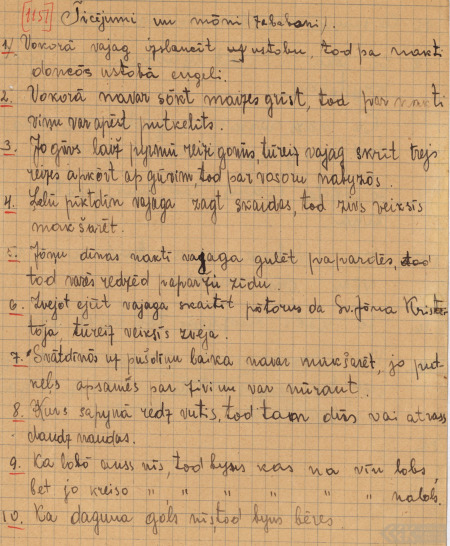 [1157] Ticējumi un mōņi (zababoni).
1. Vokorā vajag izslaucēt ustobu, tod pa nakti
doncōs ustobā engeli.
2. Vokorā navar sōkt maizes grūst, tod par nakti
viņu var apēst putkelits.
3. Jo gūvs laiž pyrmū reizi gonūs, tūreiz vajag skrīt trejs
reizes apkōrt ap gūvim, tod par vosoru nabyzōs.
4. Lelū pīktdīn vajaga zagt skaidas, tod zivs veiksīs
makšķerēt.
5. Jōņu dīnas nakti vajaga gulēt papardēs,
tod varēs redzēd paparžu zīdu.
6. Zvejot ejūt vajaga skaitīt pōtorus da Sv. Jōņa Kristei-
toja tūreiz veiksīs zveja.
7. Svātdīnōs uz pušdiņu laika navar makšarēt, jo put-
nels apsamēs par zivi un var nūraut.
8. Kurs sapynā redz vutis, tod tam dūs vai atrass
daudz naudas.
9. Ka lobō auss nīs, tod byus kas na viņ lobs,
bet jo kreiso " " " " " " nalobs.
10. Ka daguna gols nīs, tod byus bēres.